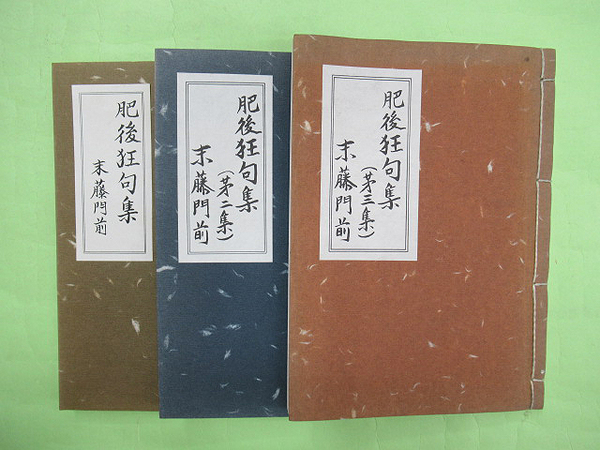 肥後狂句集
末藤門前
肥後狂句集
(第二集)
末藤門前
肥後狂句集
(第三集)
末藤門前